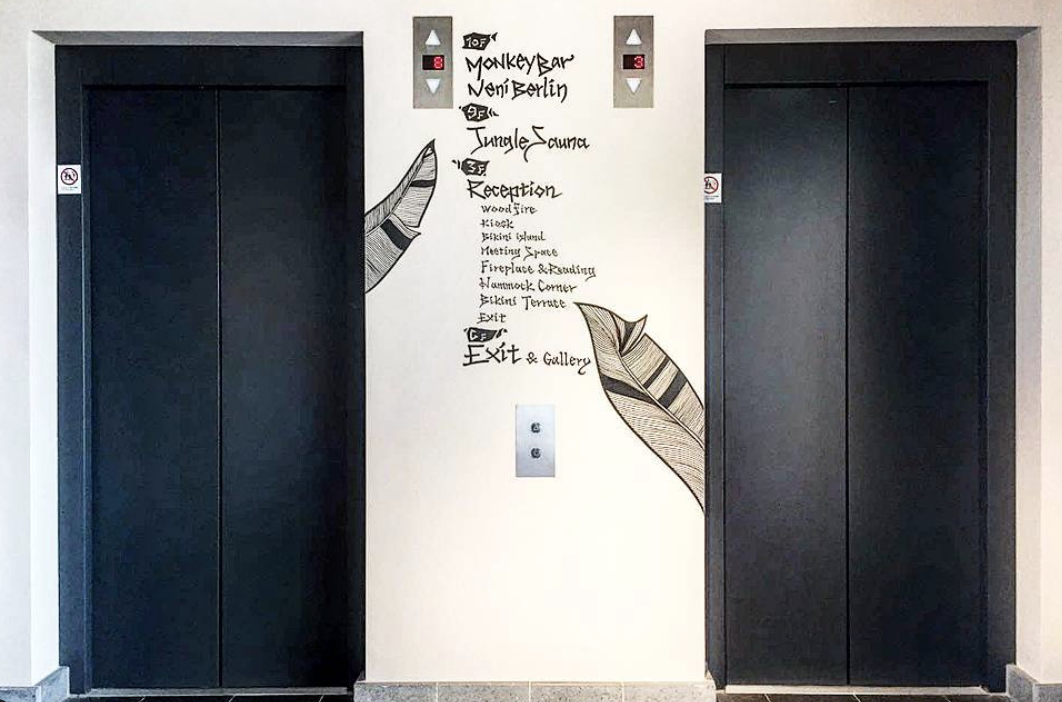 8
3
10F
Monkey Bar
Neni Berlin
9F
Jungle Sauna
3F
Reception
Woodfire
Kiosk
Bikini island
Meeting Space
Fireplace & Reading
Hammock Corner
Bikini Terrace
Exit
GF
Exit & Gallery